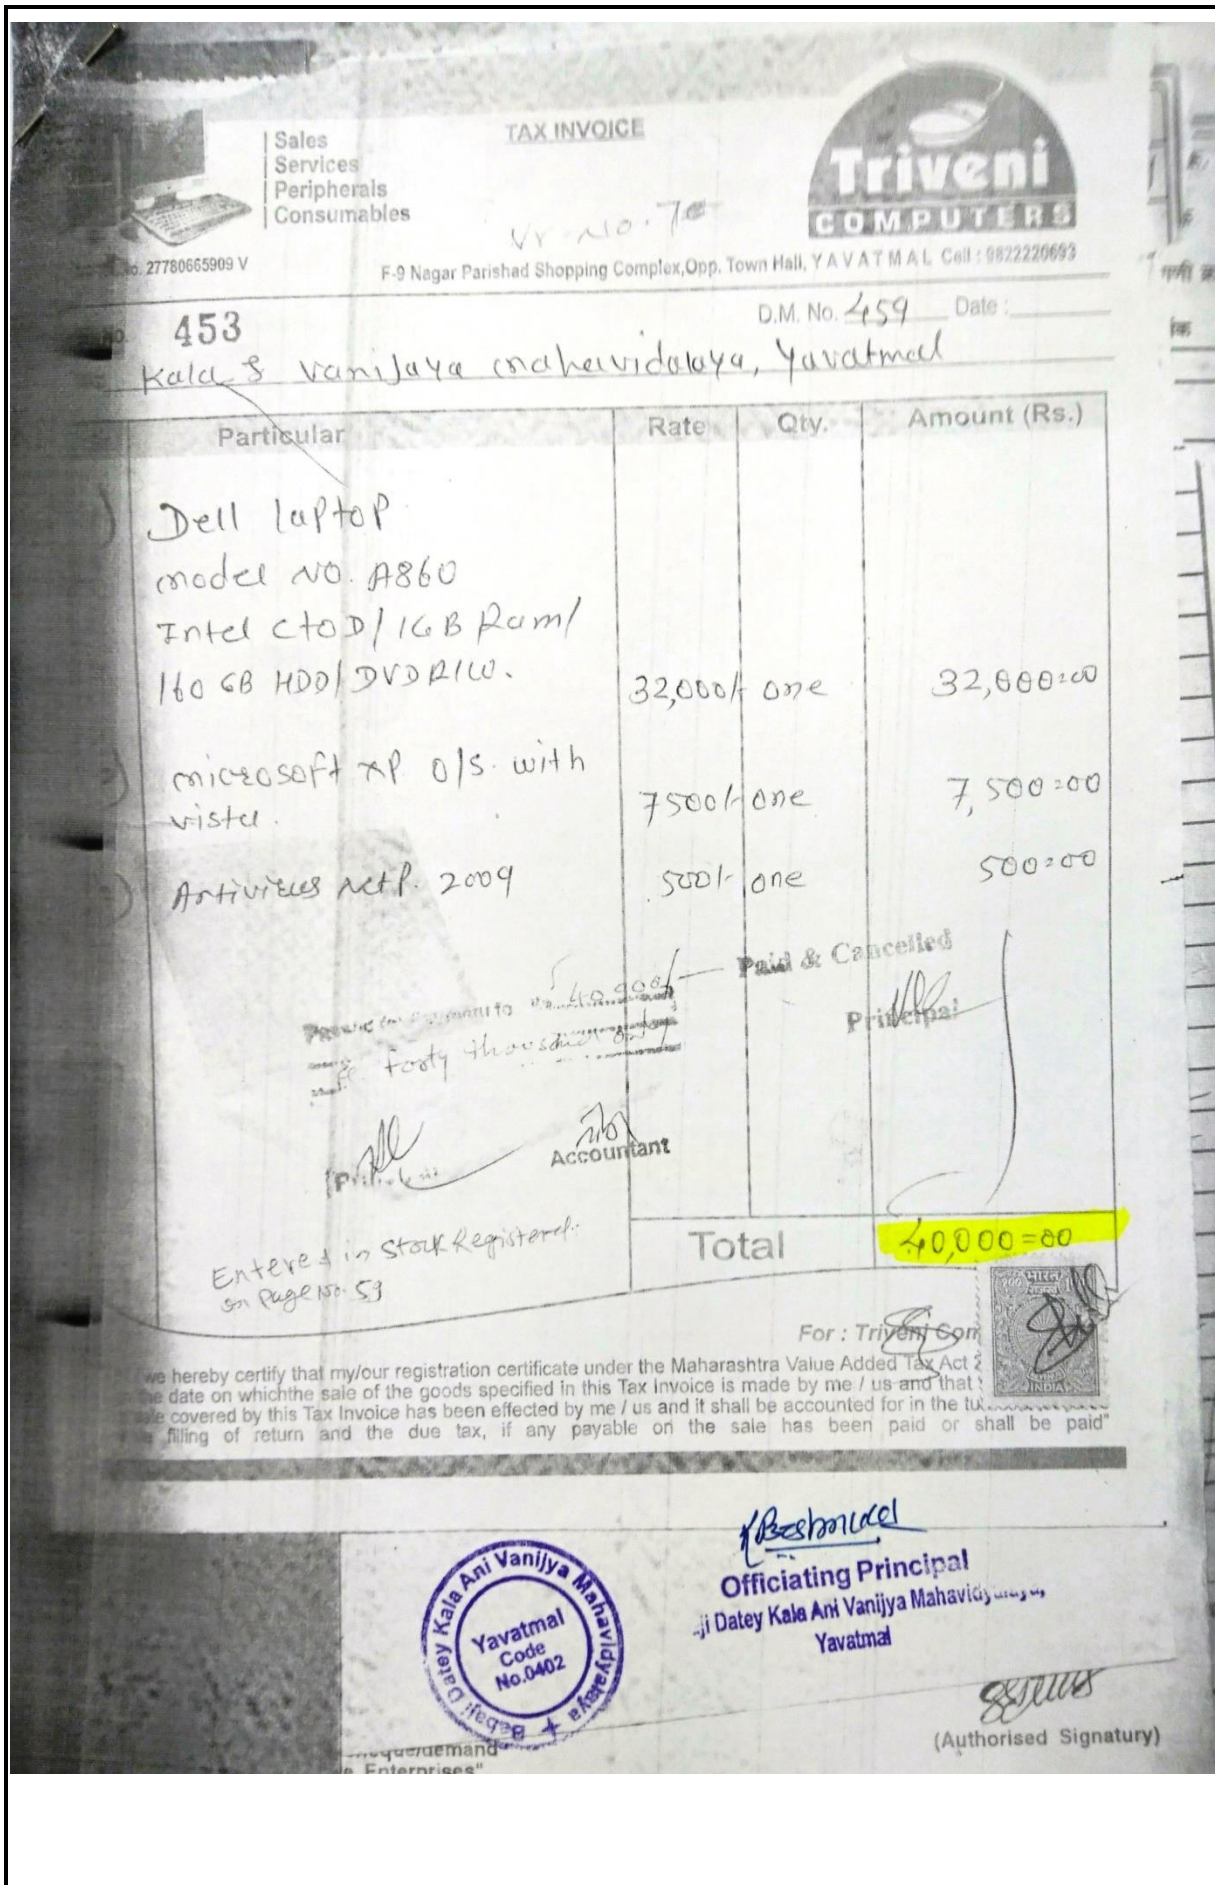 TAX INVOICE
| Sales
| Services
| Peripherals
| Consumables
Triveni
COMPUTERS
Vr. No. 70
No. 27780665909 V
F-9 Nagar Parishad Shopping Complex,Opp. Town Hall, YAVATMAL Cell : 9822220693
453
D.M. No. 459 Date :
Kala & Vanijaya mahavidalaya, Yavatmal
Particular Rate Qty. Amount (Rs.)
1) Dell laptop
model NO. A860
Intel CtoD/1GB Ram/
160 GB HDD/DVDR/W. 32,000/- one 32,000=00
2) microsoft XP O/S. with
vista. 7500/- one 7,500=00
3) Antivirus NetP. 2009 500/- one 500=00
Paid & Cancelled
Principal
to 40,000/-
forty thousand only
Accountant
Total 40,000=00
Entered in Stock Registered.
on Page No. 59
भारत
INDIA
For : Triveni Com
we hereby certify that my/our registration certificate under the Maharashtra Value Added Tax Act 2
the date on whichthe sale of the goods specified in this Tax Invoice is made by me / us and that
sale covered by this Tax Invoice has been effected by me / us and it shall be accounted for in the tu
filing of return and the due tax, if any payable on the sale has been paid or shall be paid"
Officiating Principal
ji Datey Kala Ani Vanijya Mahavidyalaya,
Yavatmal
Babaji Datey Kala Ani Vanijya Mahavidyalaya
Yavatmal
Code
No.0402
(Authorised Signatury)
demand
Enterprises"